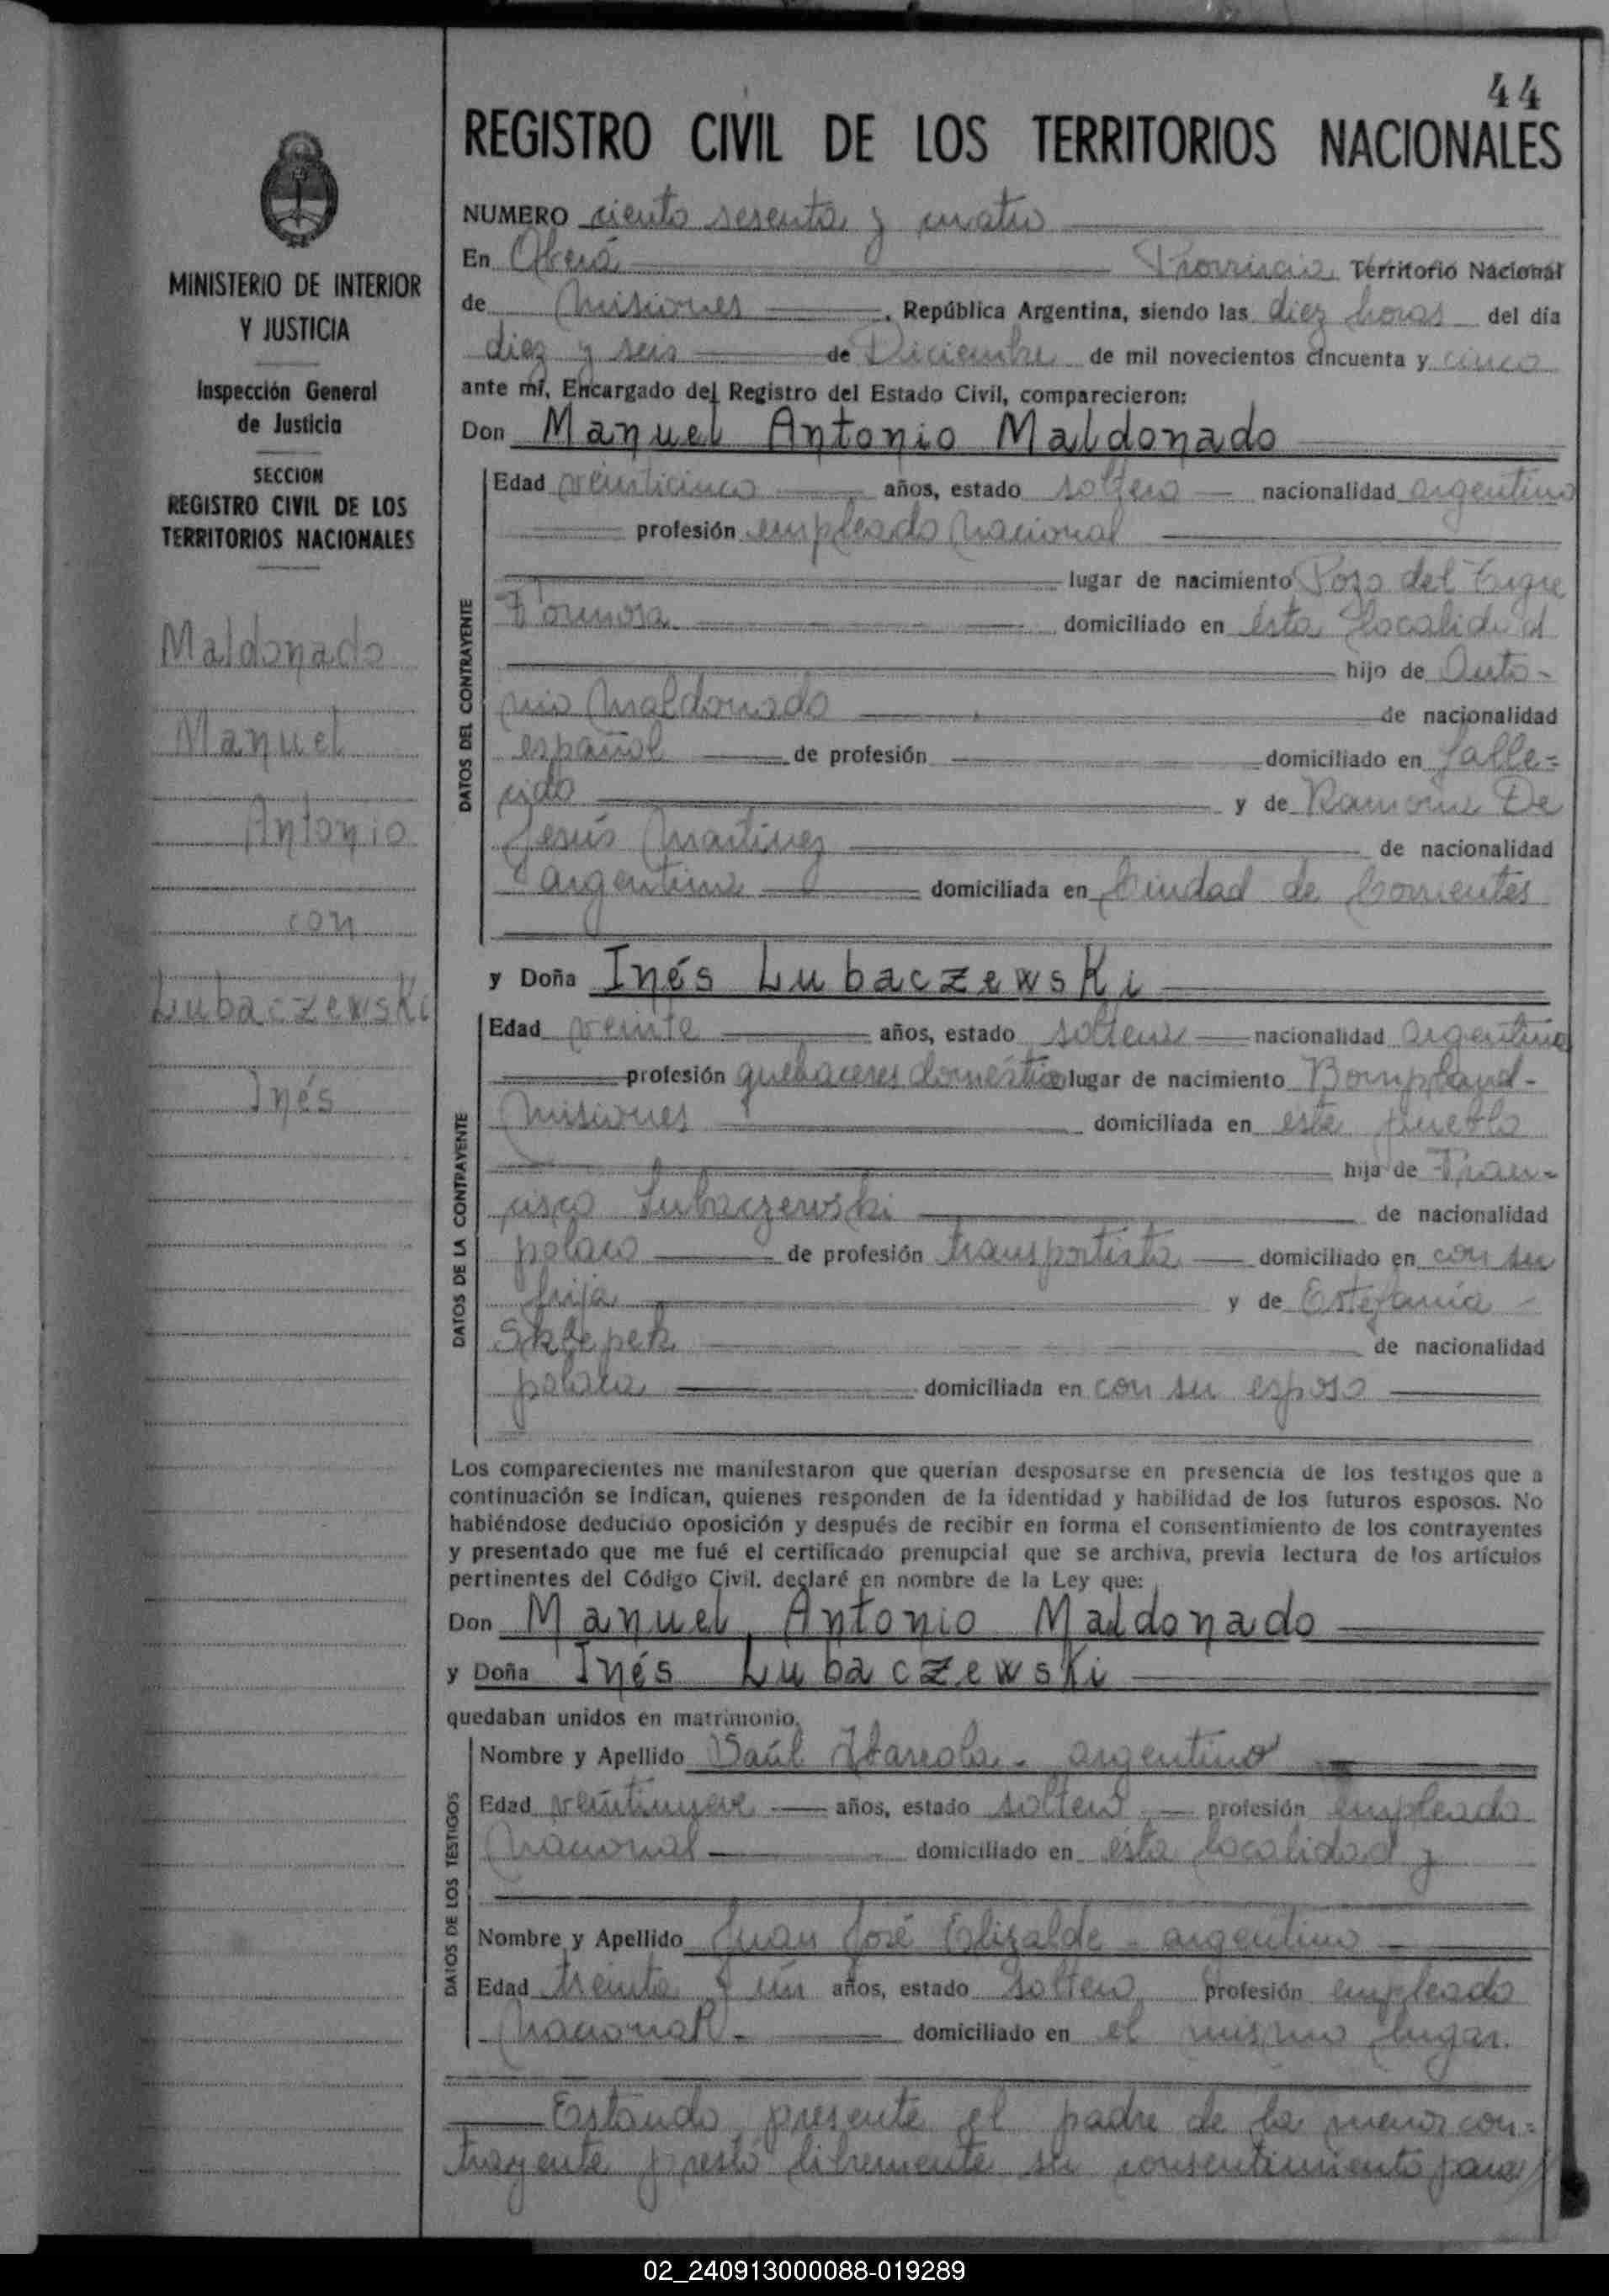 44
REGISTRO CIVIL DE LOS TERRITORIOS NACIONALES
MINISTERIO DE INTERIOR
Y JUSTICIA
Inspección General
de Justicia
SECCION
REGISTRO CIVIL DE LOS
TERRITORIOS NACIONALES
Maldonado
Manuel
Antonio
con
Lubaczewski
Inés
NUMERO ciento sesenta y cuatro
En Oberá Provincia Territorio Nacional
de Misiones, República Argentina, siendo las diez horas del día
diez y seis de Diciembre de mil novecientos cincuenta y cinco
ante mí, Encargado del Registro del Estado Civil, comparecieron:
Don Manuel Antonio Maldonado
DATOS DEL CONTRAYENTE
Edad veinticinco años, estado soltero nacionalidad argentino
profesión empleado nacional
lugar de nacimiento Pozo del Tigre
Formosa domiciliado en ésta localidad
hijo de Anto-
nio Maldonado de nacionalidad
español de profesión domiciliado en falle=
cido y de Ramona De
Jesús Martínez de nacionalidad
argentina domiciliada en Ciudad de Corrientes
y Doña Inés Lubaczewski
DATOS DE LA CONTRAYENTE
Edad veinte años, estado soltera nacionalidad argentina
profesión quehaceres domésticos lugar de nacimiento Bompland-
Misiones domiciliada en este pueblo
hija de Fran-
cisco Lubaczewski de nacionalidad
polaco de profesión transportista domiciliado en con su
hija y de Estefanía
Sklepek de nacionalidad
polaca domiciliada en con su esposo
Los comparecientes me manifestaron que querían desposarse en presencia de los testigos que a
continuación se indican, quienes responden de la identidad y habilidad de los futuros esposos. No
habiéndose deducido oposición y después de recibir en forma el consentimiento de los contrayentes
y presentado que me fué el certificado prenupcial que se archiva, previa lectura de los artículos
pertinentes del Código Civil, declaré en nombre de la Ley que:
Don Manuel Antonio Maldonado
y Doña Inés Lubaczewski
quedaban unidos en matrimonio.
DATOS DE LOS TESTIGOS
Nombre y Apellido Saúl - argentino
Edad veintinueve años, estado soltero profesión empleado
nacional domiciliado en ésta localidad y
Nombre y Apellido Juan José Elizalde - argentino
Edad treinta y un años, estado soltero profesión empleado
nacional - domiciliado en el mismo lugar.
Estando presente el padre de la menor con=
trayente prestó libremente su consentimiento para
02_240913000088-019289